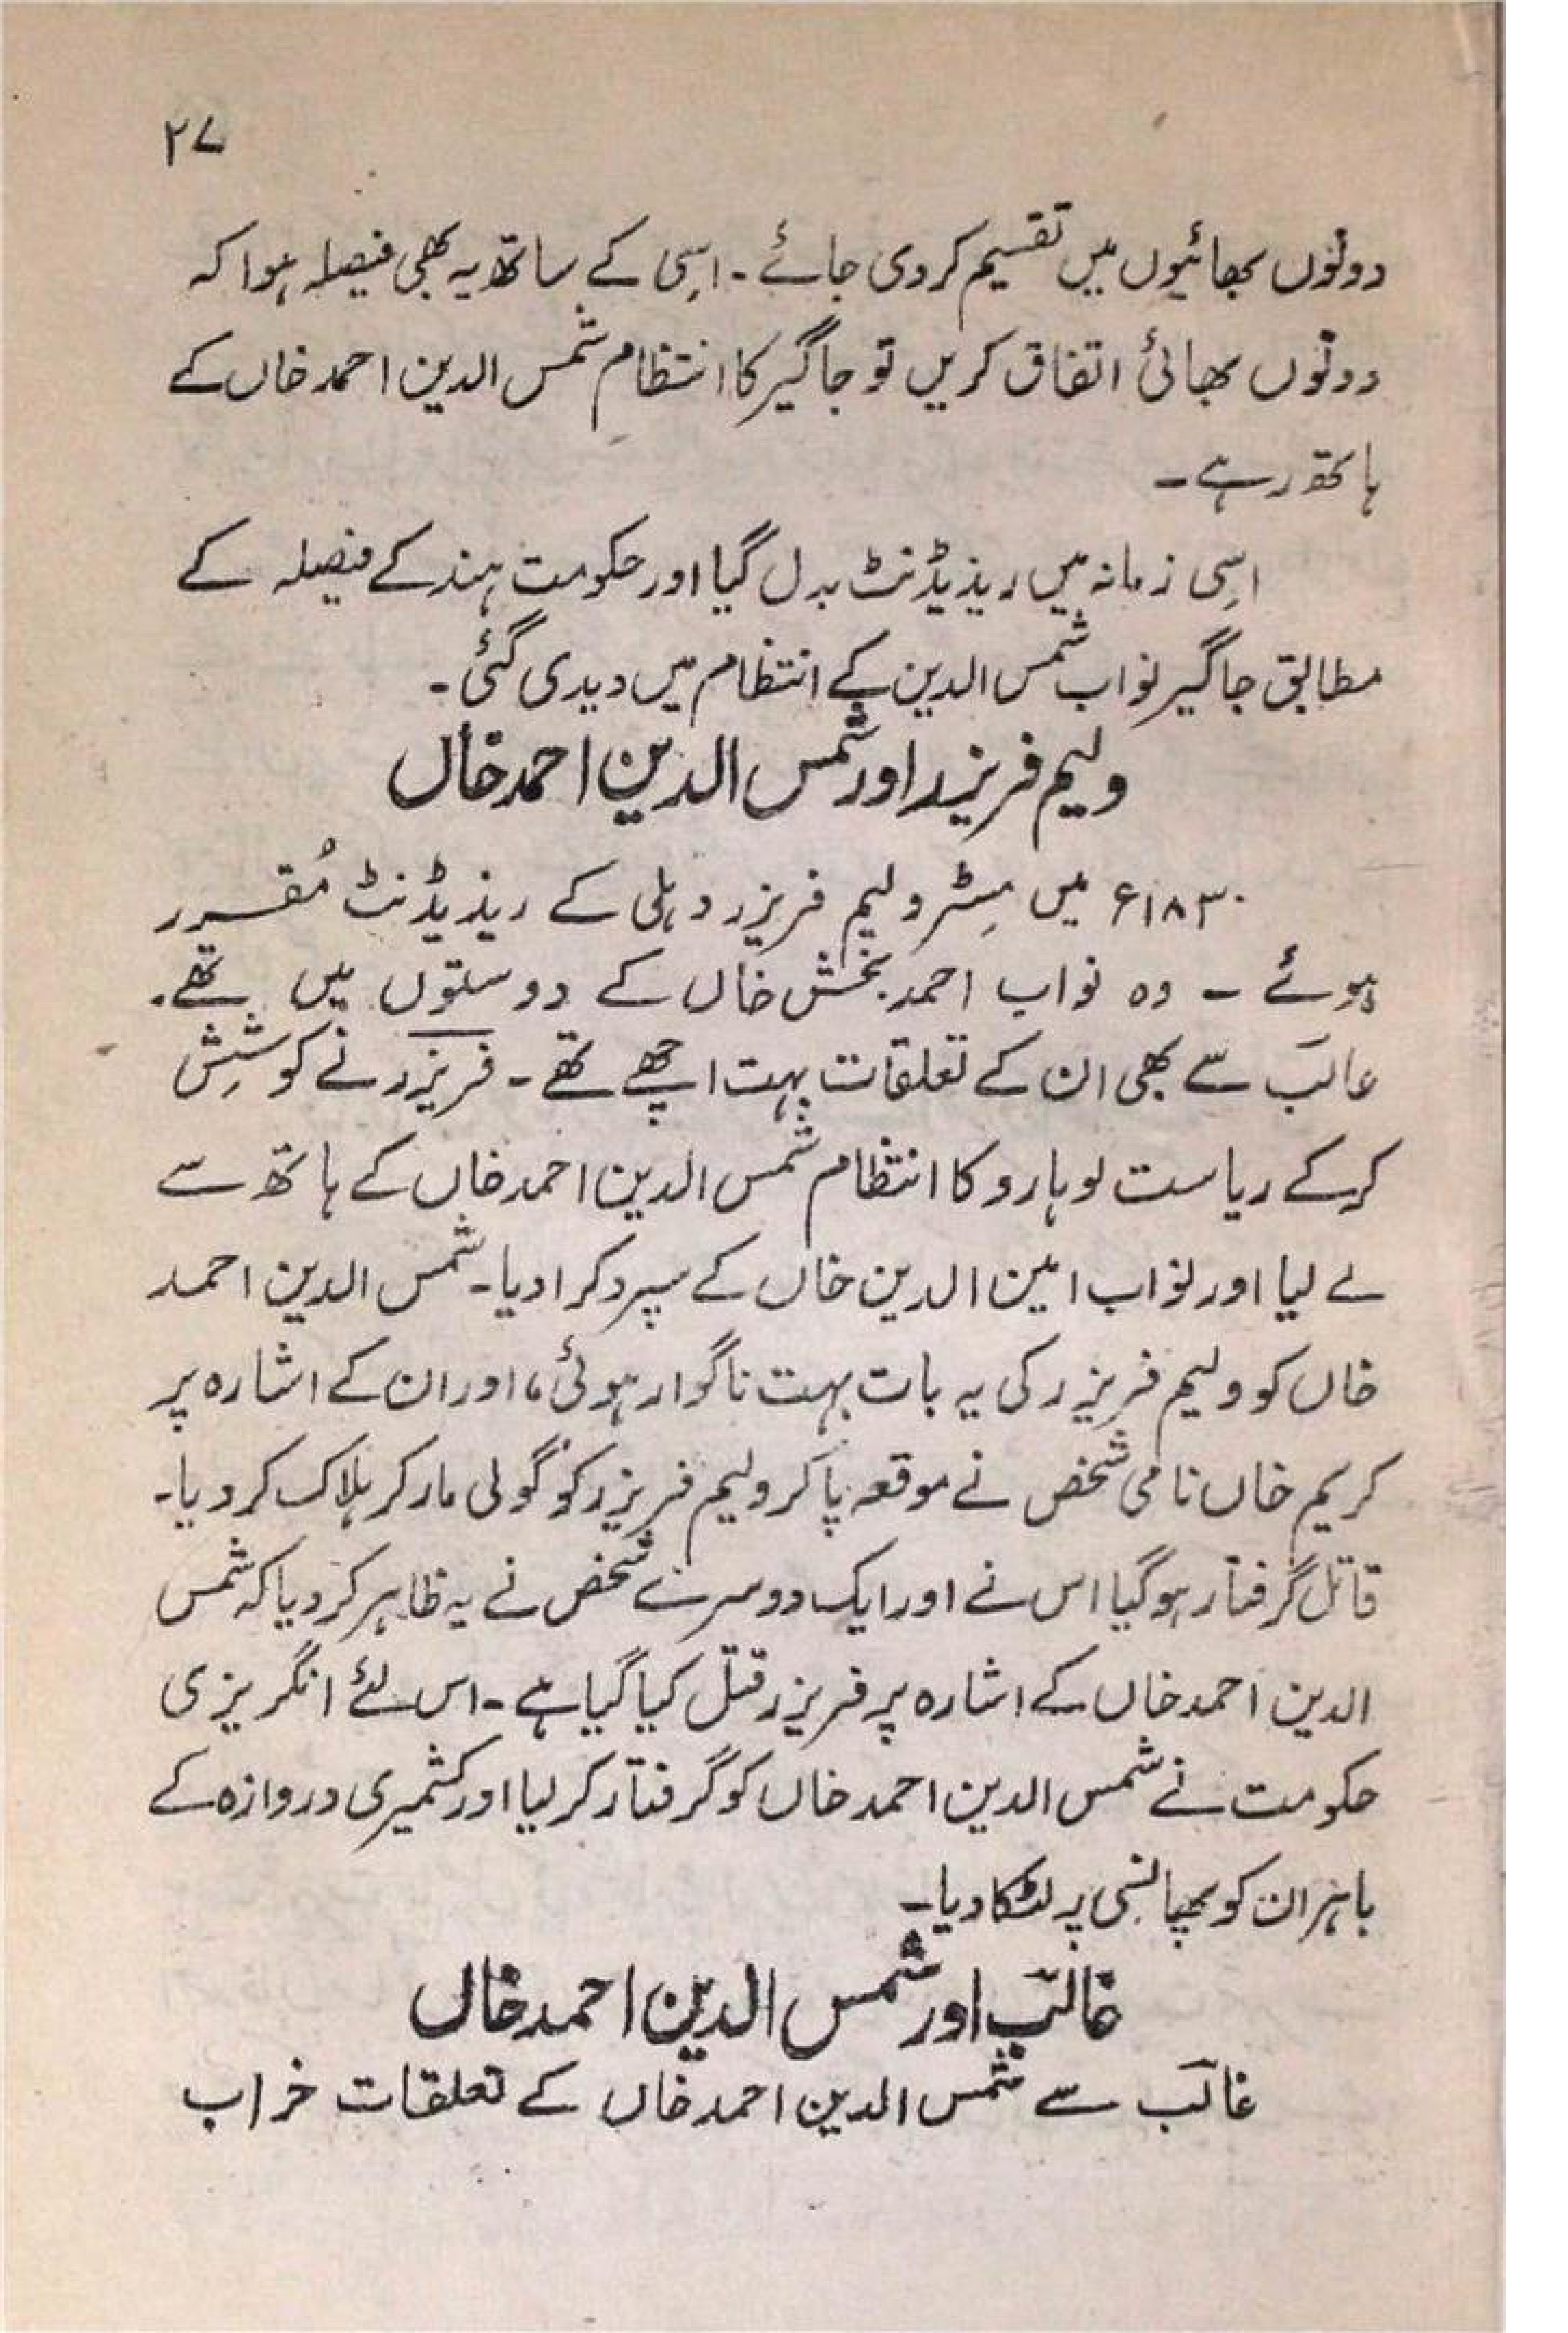 ۲۷
دونوں بھائیوں میں تقسیم کر دی جائے۔ اسی کے ساتھ یہ بھی فیصلہ ہوا کہ
دونوں بھائی اتفاق کریں تو جاگیر کا انتظام شمس الدین احمد خاں کے
ہاتھ رہے۔
اسی زمانہ میں ریذیڈنٹ بدل گیا اور حکومت ہند کے فیصلہ کے
مطابق جاگیر نواب شمس الدین کے انتظام میں دیدی گئی۔
ولیم فریزر اور شمس الدین احمد خاں
۱۸۳۰ء میں مسٹر ولیم فریزر دہلی کے ریذیڈنٹ مُقرر
ہوئے۔ وہ نواب احمد بخش خاں کے دوستوں میں تھے۔
غالبؔ سے بھی ان کے تعلقات بہت اچھے تھے۔ فریزر نے کوشِش
کر کے ریاست لوہارو کا انتظام شمس الدین احمد خاں کے ہاتھ سے
لے لیا اور نواب امین الدین خاں کے سپرد کرا دیا۔ شمس الدین احمد
خاں کو ولیم فریزر کی یہ بات بہت ناگوار ہوئی، اور ان کے اشارہ پر
کریم خاں نامی شخص نے موقعہ پا کر ولیم فریزر کو گولی مار کر ہلاک کر دیا۔
قاتل گرفتار ہو گیا اس نے اور ایک دوسرے شخص نے یہ ظاہر کر دیا کہ شمس
الدین احمد خاں کے اشارہ پر فریزر قتل کیا گیا ہے۔ اس لئے انگریزی
حکومت نے شمس الدین احمد خاں کو گرفتار کر لیا اور کشمیری دروازہ کے
باہر ان کو پھانسی پر لٹکا دیا۔
غالبؔ اور شمس الدین احمد خاں
غالبؔ سے شمس الدین احمد خاں کے تعلقات خراب